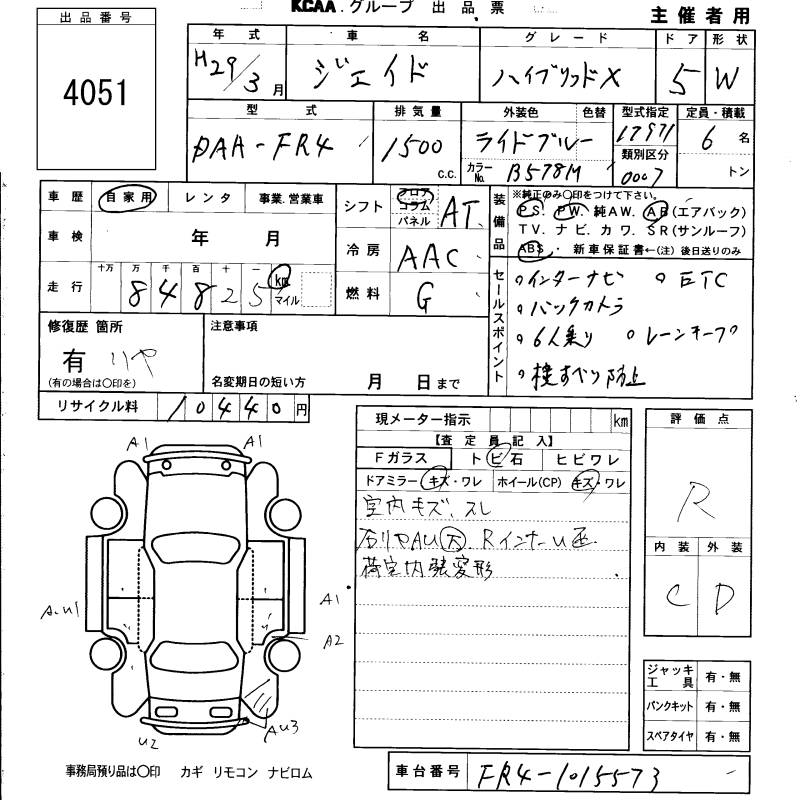 KCAA.グループ 出品票
主催者用
出品番号
4051
年式 車名 グレード ドア 形状
H29/3月 ジェイド ハイブリッドX 5 W
型式 排気量 外装色 色替 型式指定 定員・積載
DAA-FR4 1500 c.c. ライドブルー 17971 6名
カラーNo. B578M 類別区分 0007 トン
車歴 自家用 レンタ 事業.営業車
車検 年 月
走行 十万 万 千 百 十 一
84825 km マイル
シフト フロア コラム パネル AT
冷房 AAC
燃料 G
装備品 ※純正のみ〇印をつけて下さい。
PS. PW. 純AW. AB(エアバック)
TV. ナビ. カワ. SR(サンルーフ)
ABS. 新車保証書←(注)後日送りのみ
セールスポイント
インターナビ ETC
バックカメラ
6人乗り レーンキープ
横すべり防止
修復歴 箇所
有 リヤ
(有の場合は〇印を)
注意事項
名変期日の短い方 月 日まで
リサイクル料 10440円
現メーター指示 km
【査定員記入】
Fガラス トビ石 ヒビワレ
ドアミラー キズ・ワレ ホイール(CP) キズ・ワレ
室内キズ、スレ
右リヤAU大 RインナーU凹
荷室内張変形
評価点
R
内装 外装
C D
A1 A1
AU1
A1
A2
U2
AU3
ジャッキ工具 有・無
パンクキット 有・無
スペアタイヤ 有・無
事務局預り品は〇印 カギ リモコン ナビロム
車台番号 FR4-1015573